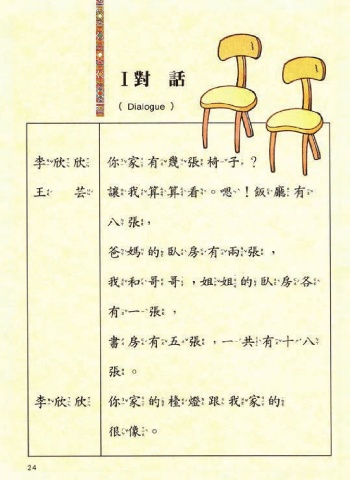 I 對 話
( Dialogue )
李欣欣 你家有幾張椅子?
王 芸 讓我算算看。嗯!飯廳有
八張,
爸媽的臥房有兩張,
我和哥哥,姐姐的臥房各
有一張,
書房有五張,一共有十八
張。
李欣欣 你家的檯燈跟我家的
很像。
24